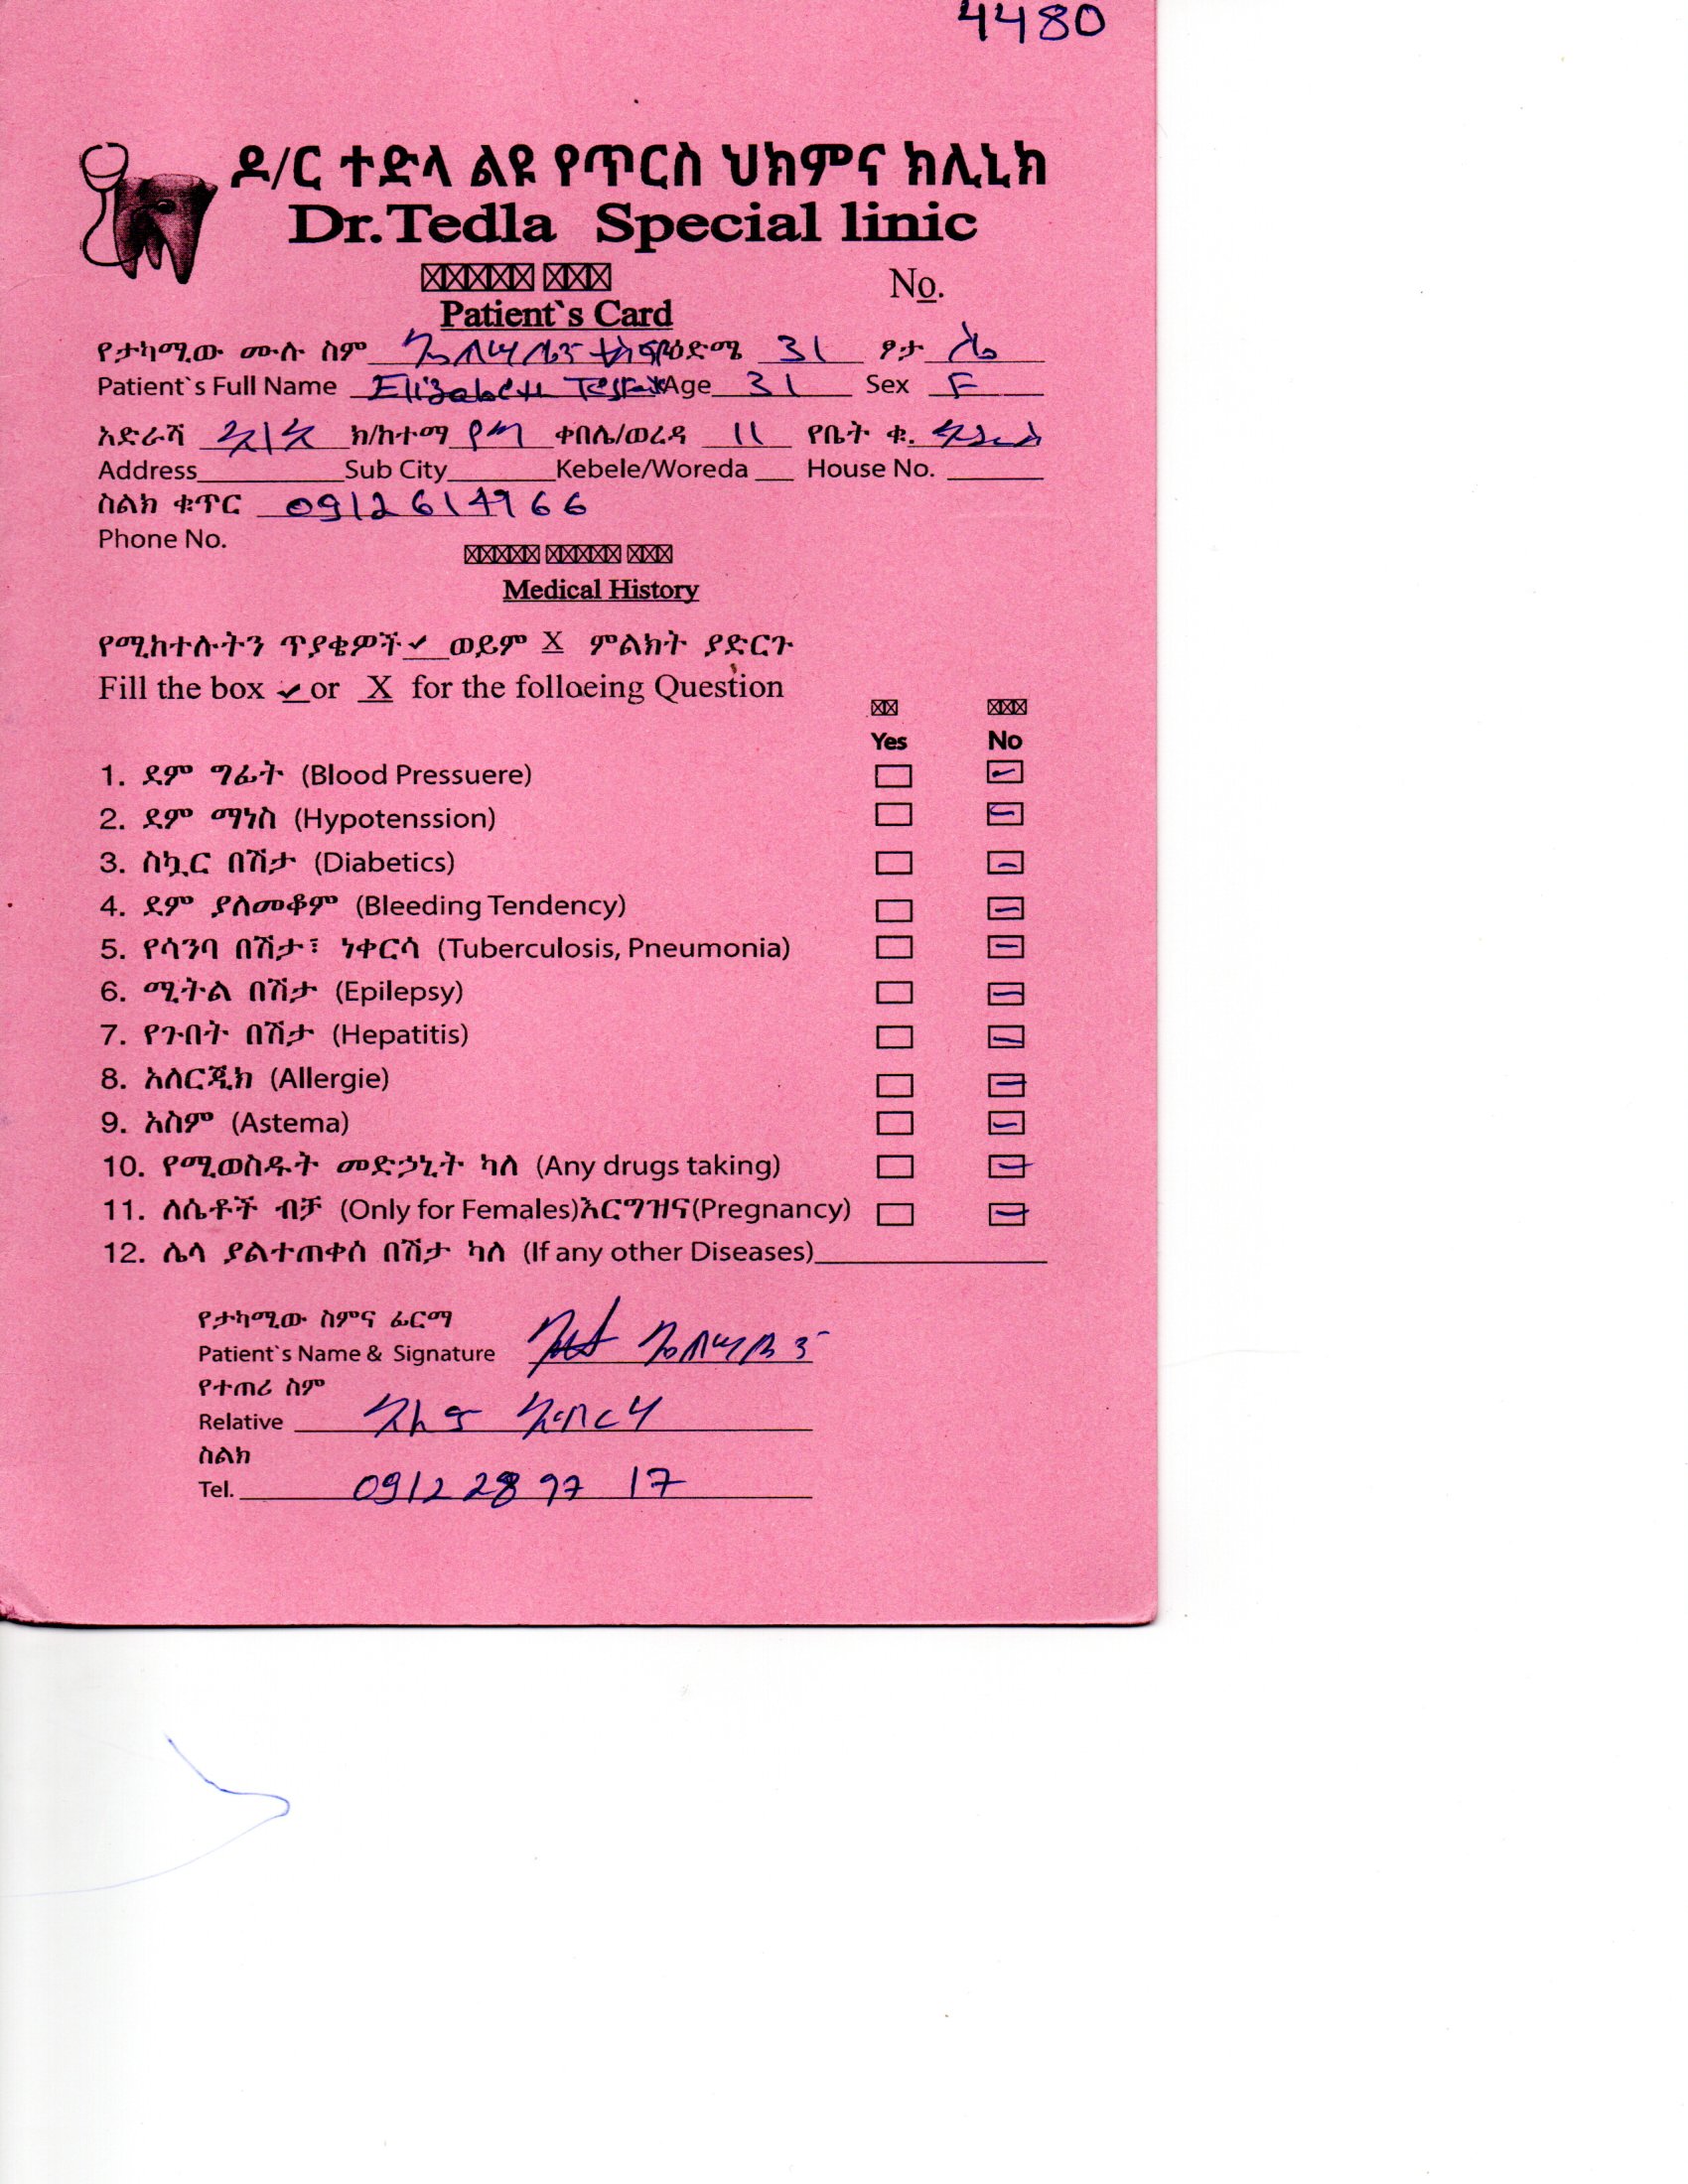 4480
ዶ/ር ተድላ ልዩ የጥርስ ህክምና ክሊኒክ
Dr.Tedla Special linic
No.
Patient`s Card
የታካሚው ሙሉ ስም ኤልሳቤጥ ዕድሜ 31 ፆታ ሴ
Patient`s Full Name Elizabeth Age 31 Sex F
አድራሻ አ/አ ክ/ከተማ የካ ቀበሌ/ወረዳ 11 የቤት ቁ. አዲስ
Address Sub City Kebele/Woreda House No.
ስልክ ቁጥር 0912614966
Phone No.
Medical History
የሚከተሉትን ጥያቄዎች ✓ ወይም X ምልክት ያድርጉ
Fill the box ✓ or X for the folloeing Question
Yes No
1. ደም ግፊት (Blood Pressuere)
2. ደም ማነስ (Hypotenssion)
3. ስኳር በሽታ (Diabetics)
4. ደም ያለመቆም (Bleeding Tendency)
5. የሳንባ በሽታ፣ ነቀርሳ (Tuberculosis, Pneumonia)
6. ሚትል በሽታ (Epilepsy)
7. የጉበት በሽታ (Hepatitis)
8. አለርጂክ (Allergie)
9. አስም (Astema)
10. የሚወስዱት መድኃኒት ካለ (Any drugs taking)
11. ለሴቶች ብቻ (Only for Females)እርግዝና(Pregnancy)
12. ሌላ ያልተጠቀሰ በሽታ ካለ (If any other Diseases)
የታካሚው ስምና ፊርማ
Patient`s Name & Signature ኤልሳቤጥ
የተጠሪ ስም
Relative
ስልክ
Tel. 0912 28 97 17